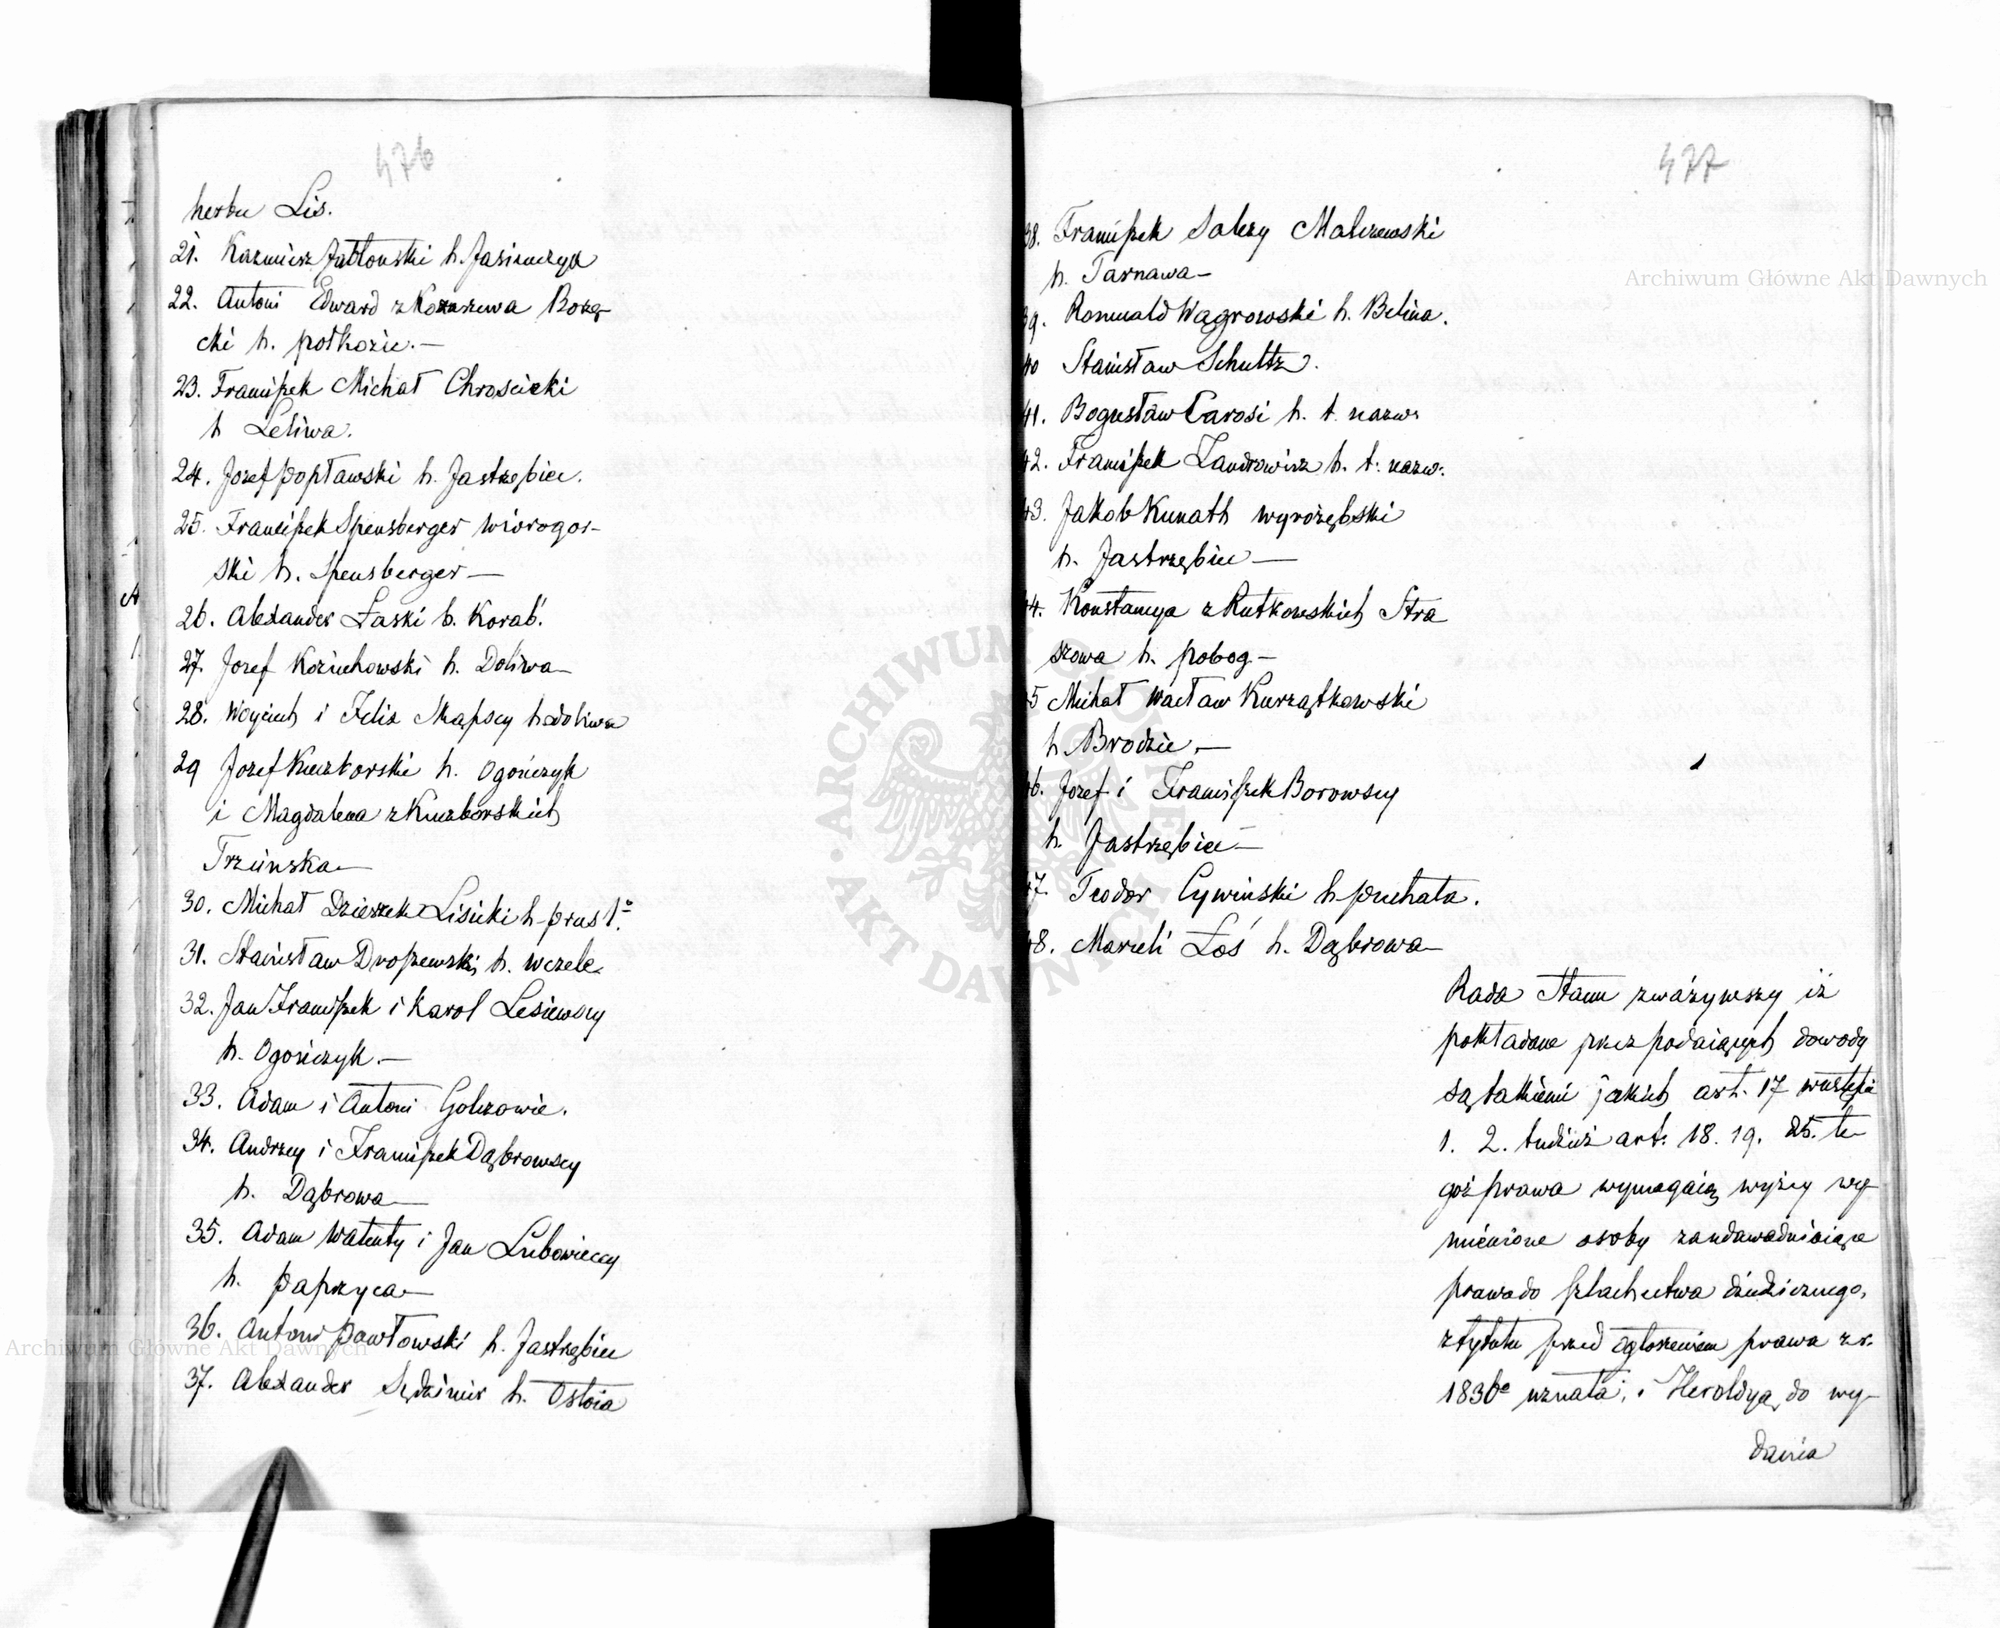 476
herbu Lis.
21. Kazmierz Jabłonski h. Jasienczyk
22. Antoni Edward z Bozę
cki h. połkozie.—
23. Franciszek Michał Chroscicki
h Leliwa.
24. Jozef Popławski h. Jastrzębiec.
25. Franciszek Spensberger Wiorogor-
ski h. Spensberger—
26. Alexander Łaski h. Korab.
27. Jozef Koziuchowski h. Doliwa—
28. Woyciech i Felix h. doliwa
29 Jozef Kuczborski h. Ogończyk
i Magdalena z Kuczborskich
Trzcinska—
30. Michał Dzierzek Lisicki h prus 1º.
31. Stanisław Droszewski h. Wczele.
32. Jan Franciszek i Karol Lesiewscy
h. Ogończyk.—
33. Adam i Antoni Golczowie.
34. Andrzey i Franciszek Dąbrowscy
h. Dąbrowa—
35. Adam Walenty i Jan Lubowieccy
h. Paprzyca—
36. Antoni Pawłowski h. Jastrzębiec
37. Alexander Sędzimir h. Ostoia
477
38. Franciszek Salezy Malczewski
h. Tarnawa—
39. Romuald Wągrowski h. Belina.
40 Stanisław Schultz.
41. Bogusław Carosi h. t. nazw.
42. Franciszek Landrowicz h. t. nazw.
43. Jakob Kunath Wyrozębski
h. Jastrzębiec—
44. Konstancya z Rutkowskich Stra
szowa h. pobog—
45 Michał Wacław Kurzątkowski
h Brodzic.—
46. Jozef i Franciszek Borowscy
h. Jastrzębiec—
47. Teodor Cywinski h Puchała.
48. Marceli Łoś h. Dąbrowa—
Rada Stanu zważywszy iż
pokładane przez podaiących dowody
są takiemi jakich art. 17 wustępie
1. 2. tudzież art. 18. 19. 25. te
goż prawa wymagaią wyżey wy
mienione osoby za udawadniaiące
prawa do szlachectwa dziedzicznego,
z tytułu przed ogłoszeniem prawa z r.
1836º uznała; i Heroldyą do wy-
dania
Archiwum Główne Akt Dawnych
Archiwum Główne Akt Dawnych
ARCHIWUM GŁÓWNE AKT DAWNYCH